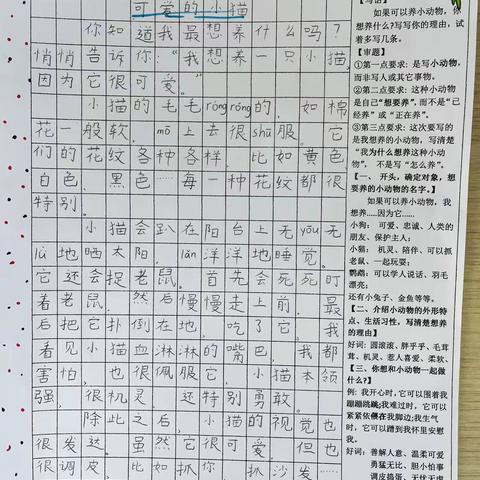 可爱的小猫
你知道我最想养什么吗？
悄悄告诉你：“我最想养一只小猫，
因为它很可爱。”
小猫的毛毛róngróng的，如棉
花一般软，mō上去很shū服。它
们的花纹各种各样，比如黄色、
白色、黑色……每一种花纹都很
特别。
小猫会趴在阳台上无yōu无
lǜ地晒太阳，lǎn洋洋地睡觉。
它还会捉老鼠，首先会死死盯
着老鼠，然后慢慢走上前，最
后把它扑倒在地，吃了它，我
看见小猫血淋淋的嘴巴，我都
害怕，也很佩服它，小猫本领
强，很机灵，还特别勇敢。
除此之后，小猫的视觉也
很发达。虽然它很可爱，但也
很调皮，比如抓你、抓沙发……
【写话】
如果可以养小动物，你
想养什么?写写你的理由，试
着多写几条。
【审题】
①第一点要求：是写小动物，
而非写人或其它事物。
②第二点要求：这种小动物
是自己“想要养”，而不是“已
经养”或“正在养”。
③第三点要求：这次要写的
是我想养的小动物，写清楚
“我为什么想养这种小动
物”，不是写“怎么养”。
【一、开头，确定对象，想
要养的小动物的名字。】
如果可以养小动物，我
想养.....因为它......
小狗：可爱、忠诚、人类的
朋友、保护主人；
小猫：机灵、陪伴、可以抓
老鼠、一起玩耍；
鹦鹉：可以学人说话、羽毛
漂亮；
还有小兔子、金鱼等等。
【二、介绍小动物的外形特
点、生活习性，写清楚想养
的理由】
好词：圆滚滚、胖乎乎、毛茸
茸、机灵、惹人喜爱、柔软、
【三、你想和小动物一起做
什么?】
例：我开心时，它可以围着我
蹦蹦跳跳;我难过时，它可以
紧紧依偎在我脚边;我生气
时，它可以蹭到我怀里安慰
我。
好词：善解人意、温柔可爱
勇猛无比、胆小怕事
调皮捣蛋、无忧无虑